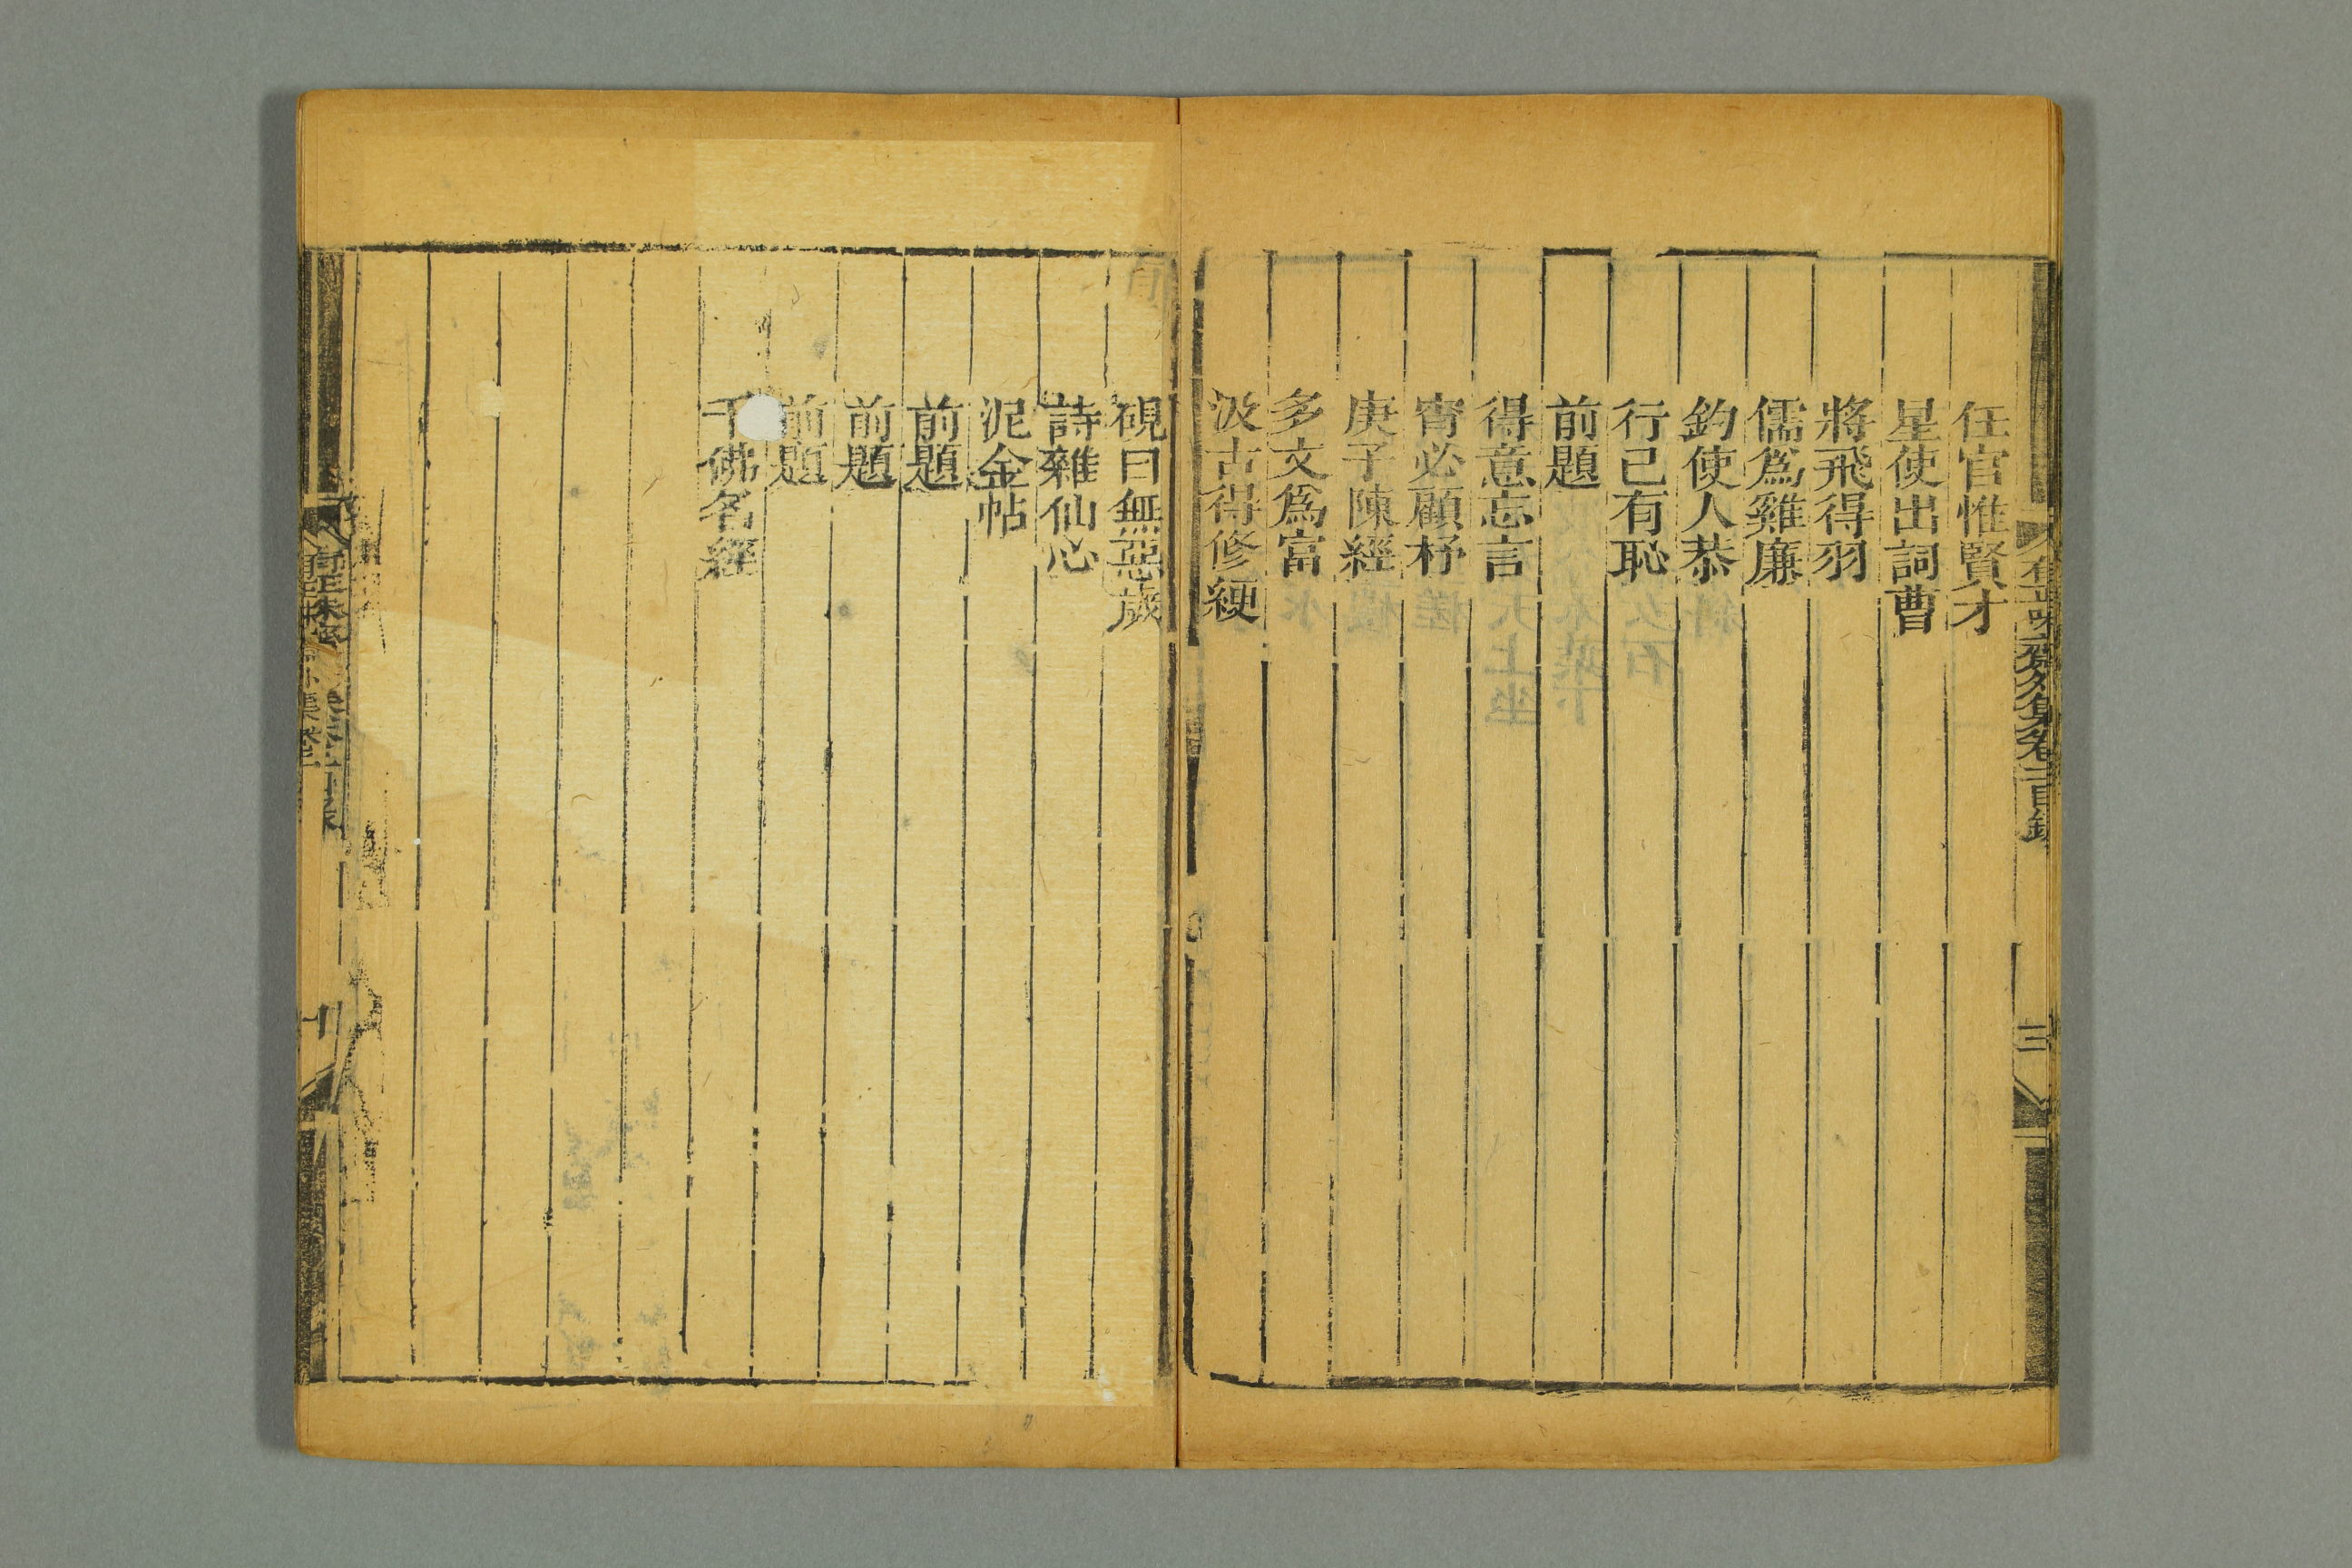 有正味齋外集卷二目錄
三
任官惟賢才
星使出詞曹
將飛得羽
儒爲雞廉
釣使人恭
行己有恥
前題
得意忘言
宵必顧杼
庚子陳經
多文爲富
汲古得修綆
硯田無惡歲
詩雜仙心
泥金帖
前題
前題
前題
千佛名經